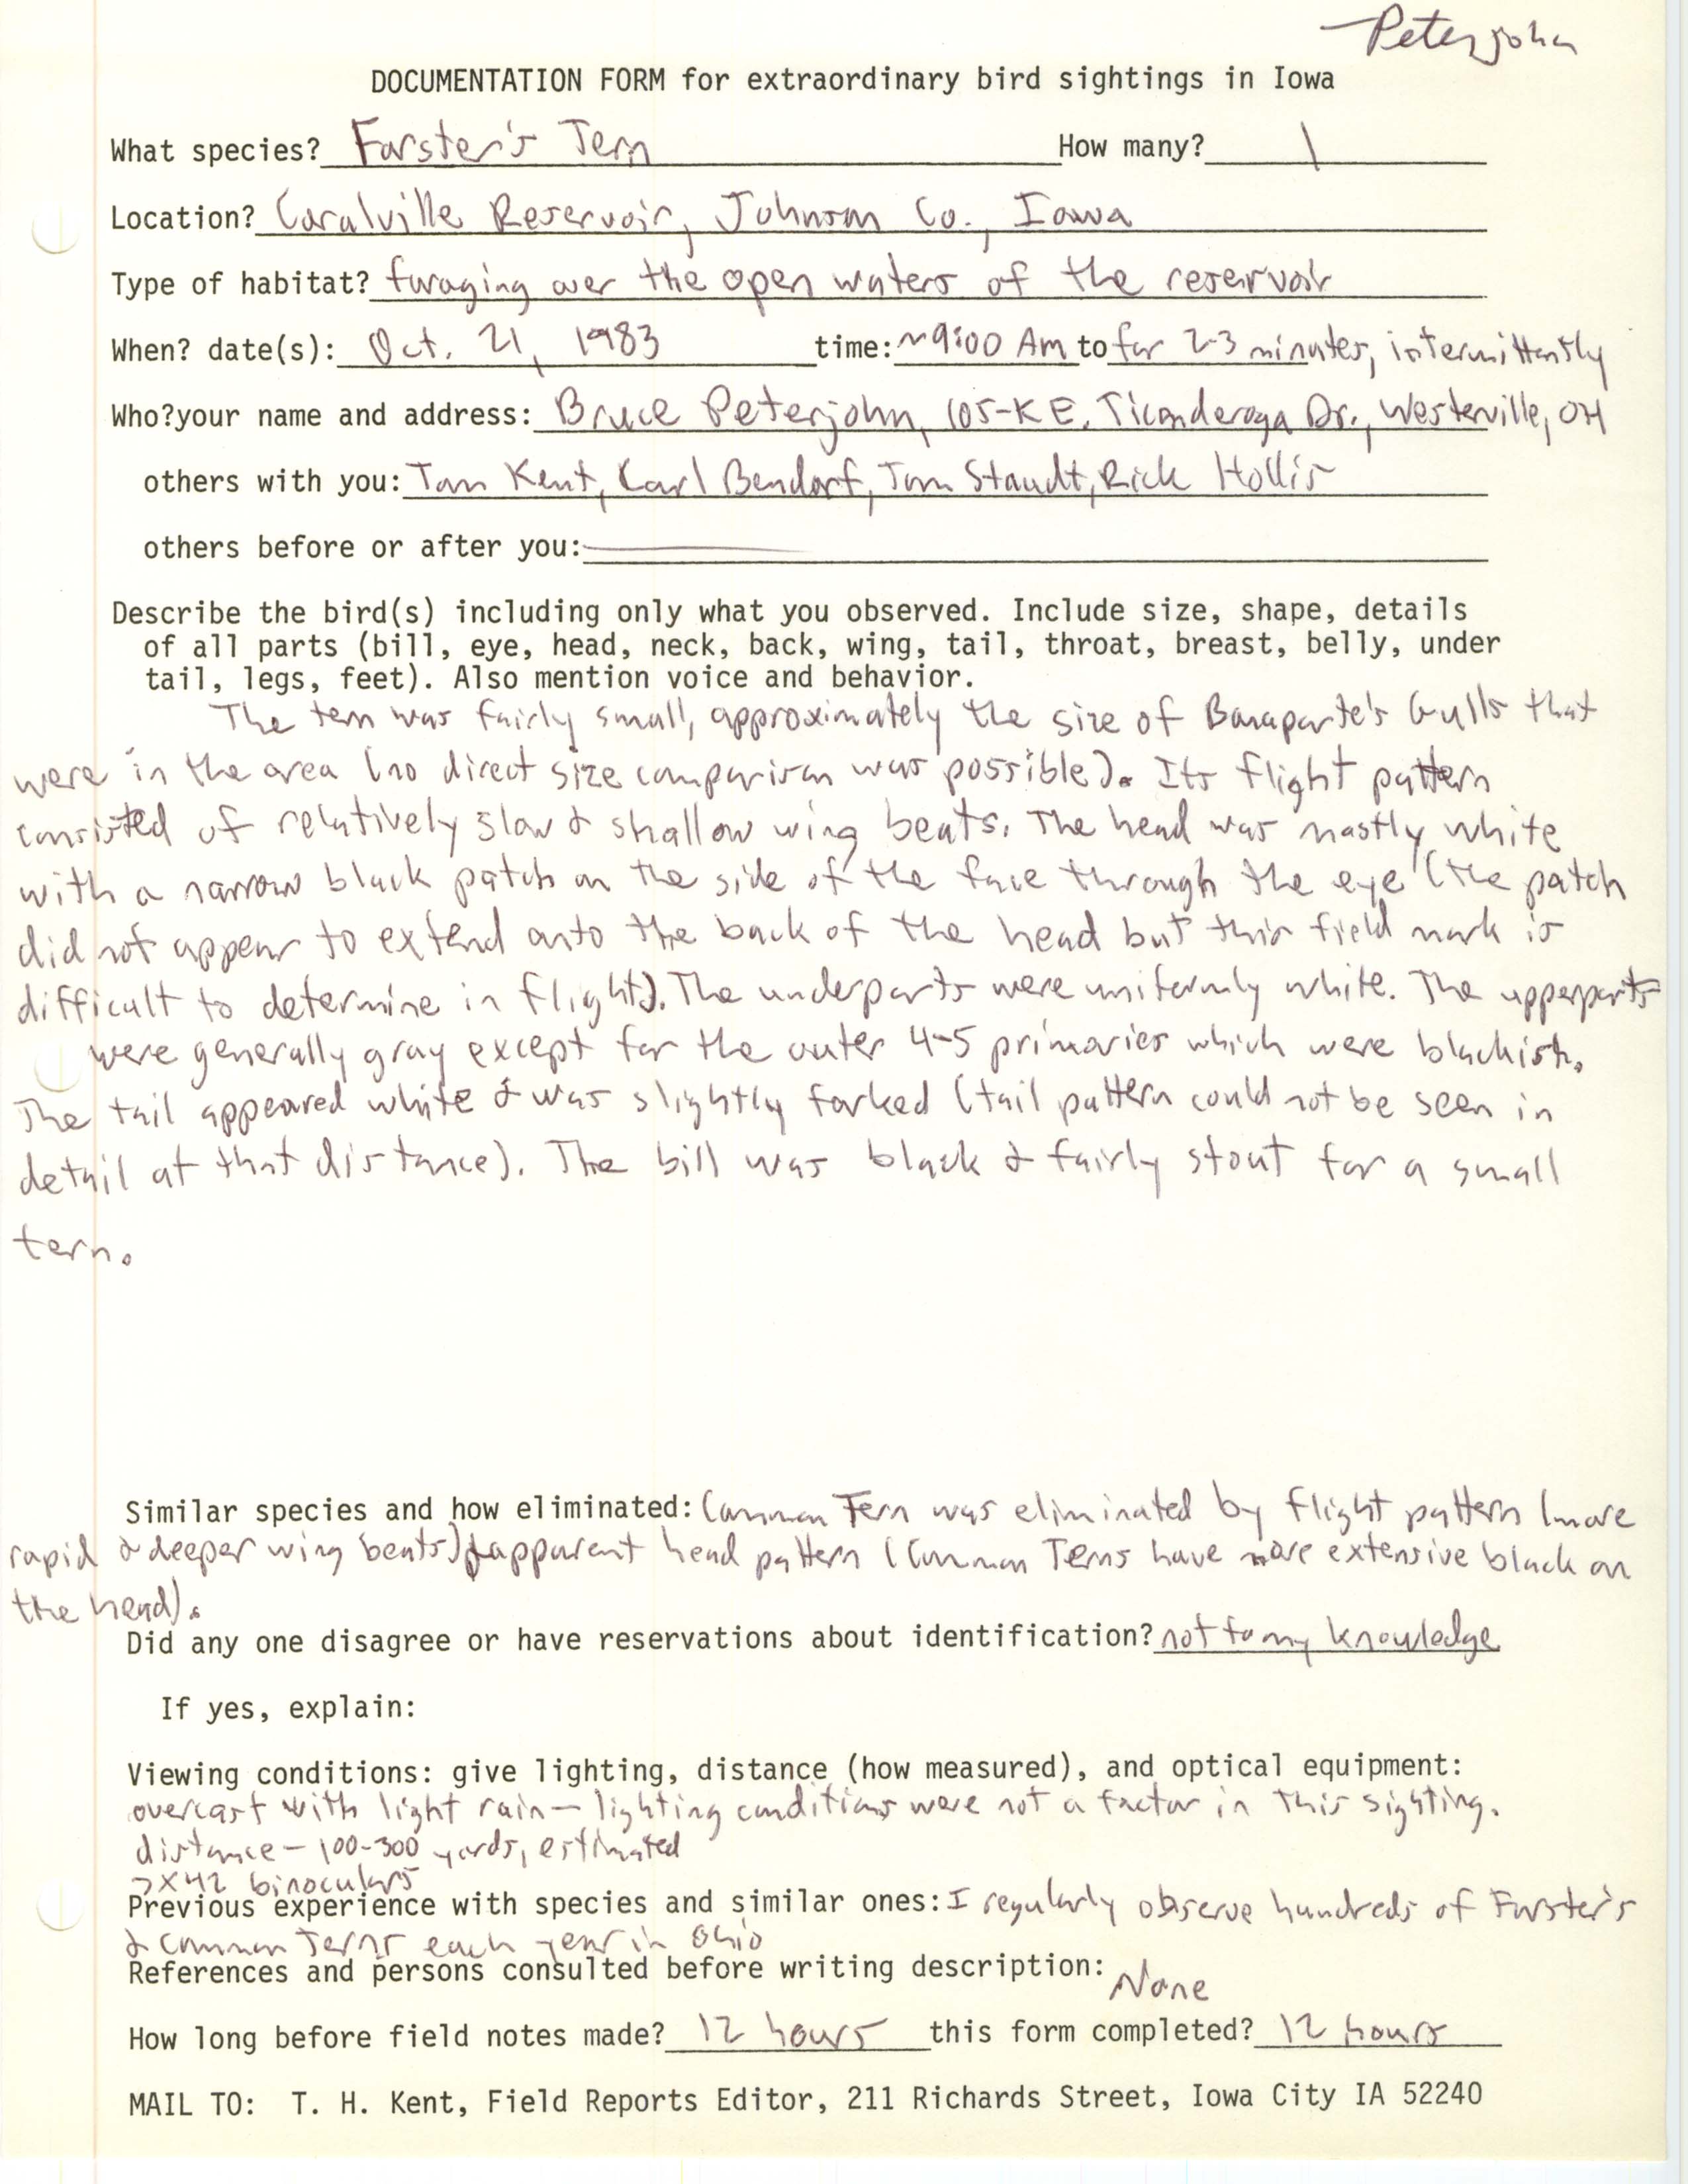 Peterjohn
DOCUMENTATION FORM for extraordinary bird sightings in Iowa
What species? Forster's Tern How many? 1
Location? Coralville Reservoir, Johnson Co., Iowa
Type of habitat? foraging over the open waters of the reservoir
When? date(s): Oct. 21, 1983 time: ~9:00 AM to for 2-3 minutes, intermittently
Who?your name and address: Bruce Peterjohn, 105-K E. Ticonderoga Dr., Westerville, OH
others with you: Tom Kent, Carl Bendorf, Tom Staudt, Rick Hollis
others before or after you:
Describe the bird(s) including only what you observed. Include size, shape, details
of all parts (bill, eye, head, neck, back, wing, tail, throat, breast, belly, under
tail, legs, feet). Also mention voice and behavior.
The tern was fairly small, approximately the size of Bonaparte's Gulls that
were in the area (no direct size comparison was possible). Its flight pattern
consisted of relatively slow & shallow wing beats. The head was mostly white
with a narrow black patch on the side of the face through the eye (the patch
did not appear to extend onto the back of the head but this field mark is
difficult to determine in flight). The underparts were uniformly white. The upperparts
were generally gray except for the outer 4-5 primaries which were blackish.
The tail appeared white & was slightly forked (tail pattern could not be seen in
detail at that distance). The bill was black & fairly stout for a small
tern.
Similar species and how eliminated: Common Tern was eliminated by flight pattern (more
rapid & deeper wing beats) & apparent head pattern (Common Terns have more extensive black on
the head).
Did any one disagree or have reservations about identification? not to my knowledge
If yes, explain:
Viewing conditions: give lighting, distance (how measured), and optical equipment:
overcast with light rain – lighting conditions were not a factor in this sighting.
distance – 100-300 yards, estimated
7x42 binoculars
Previous experience with species and similar ones: I regularly observe hundreds of Forster's
& Common Terns each year in Ohio
References and persons consulted before writing description: None
How long before field notes made? 12 hours this form completed? 12 hours
MAIL TO: T. H. Kent, Field Reports Editor, 211 Richards Street, Iowa City IA 52240